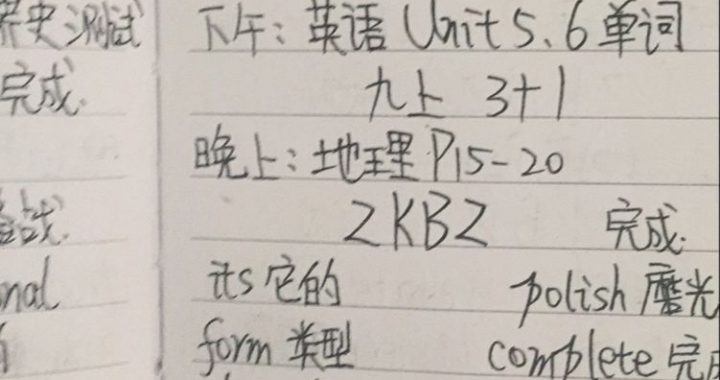 史测试 下午：英语 Unit 5、6 单词
完成. 九上 3+1
晚上：地理 P15-20
战. ZKBZ 完成.
nal its 它的 polish 磨光
form 类型 complete 完成